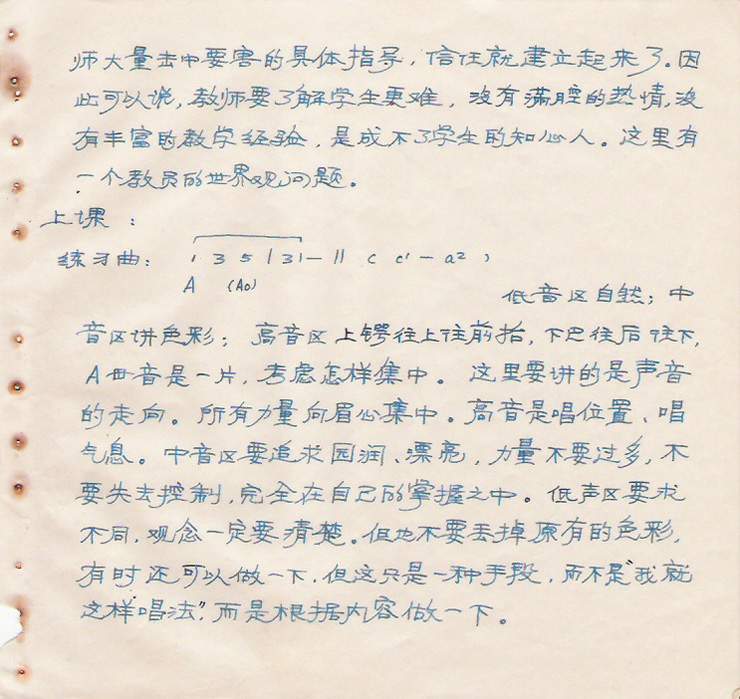 师大量击中要害的具体指导，信任就建立起来了。因
此可以说，教师要了解学生更难，没有满腔的热情，没
有丰富的教学经验，是成不了学生的知心人。这里有
一个教员的世界观问题。
上课：
练习曲： 1 3 5 1 3 1 — || c c¹ — a²，
A (Ao)
低音区自然；中
音区讲色彩；高音区上锷往上往前抬，下巴往后往下，
A母音是一片，考虑怎样集中。这里要讲的是声音
的走向。所有力量向眉心集中。高音是唱位置、唱
气息。中音区要追求园润、漂亮，力量不要过多，不
要失去控制，完全在自己的掌握之中。低声区要求
不同，观念一定要清楚。但也不要丢掉原有的色彩，
有时还可以做一下，但这只是一种手段，而不是“我就
这样唱法”，而是根据内容做一下。